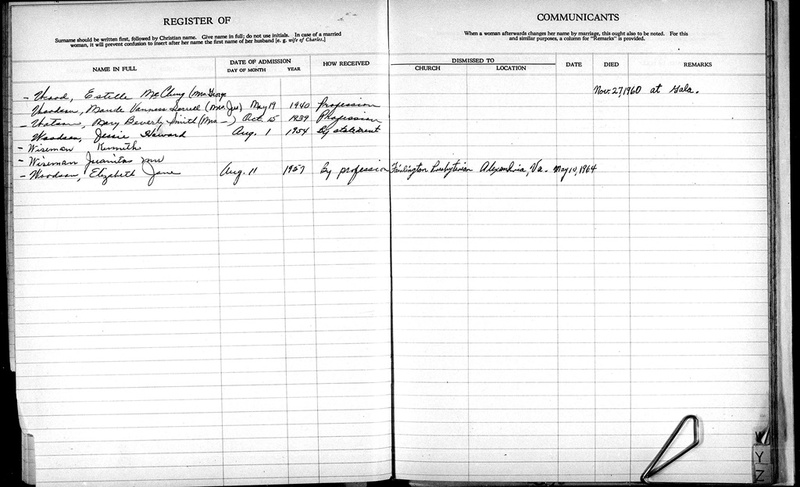 REGISTER OF
Surname should be written first, followed by Christian name. Give name in full; do not use initials. In case of a married
woman, it will prevent confusion to insert after her name the first name of her husband [e. g. wife of Charles.]
NAME IN FULL
DATE OF ADMISSION
DAY OF MONTH YEAR
HOW RECEIVED
- Wood, Estelle McClung (Mrs George
Woodson, Maude Vanness Sorrell (Mrs Jes) May 19 1940 Profession
- Watson, Mary Beverly Smith (Mrs -) Oct. 15 1939 Profession
Woodson, Jessie Howard Aug. 1 1954 By statement
- Wiseman Kenneth
- Wiseman Juanita Mrs
- Woodson, Elizabeth Jane Aug. 11 1957 by profession Fairlington Presbyterian Alexandria, Va. May 10, 1964
COMMUNICANTS
When a woman afterwards changes her name by marriage, this ought also to be noted. For this
and similar purposes, a column for "Remarks" is provided.
DISMISSED TO
CHURCH LOCATION
DATE
DIED
REMARKS
Nov. 27, 1960 at Gala.
W
Y
Z